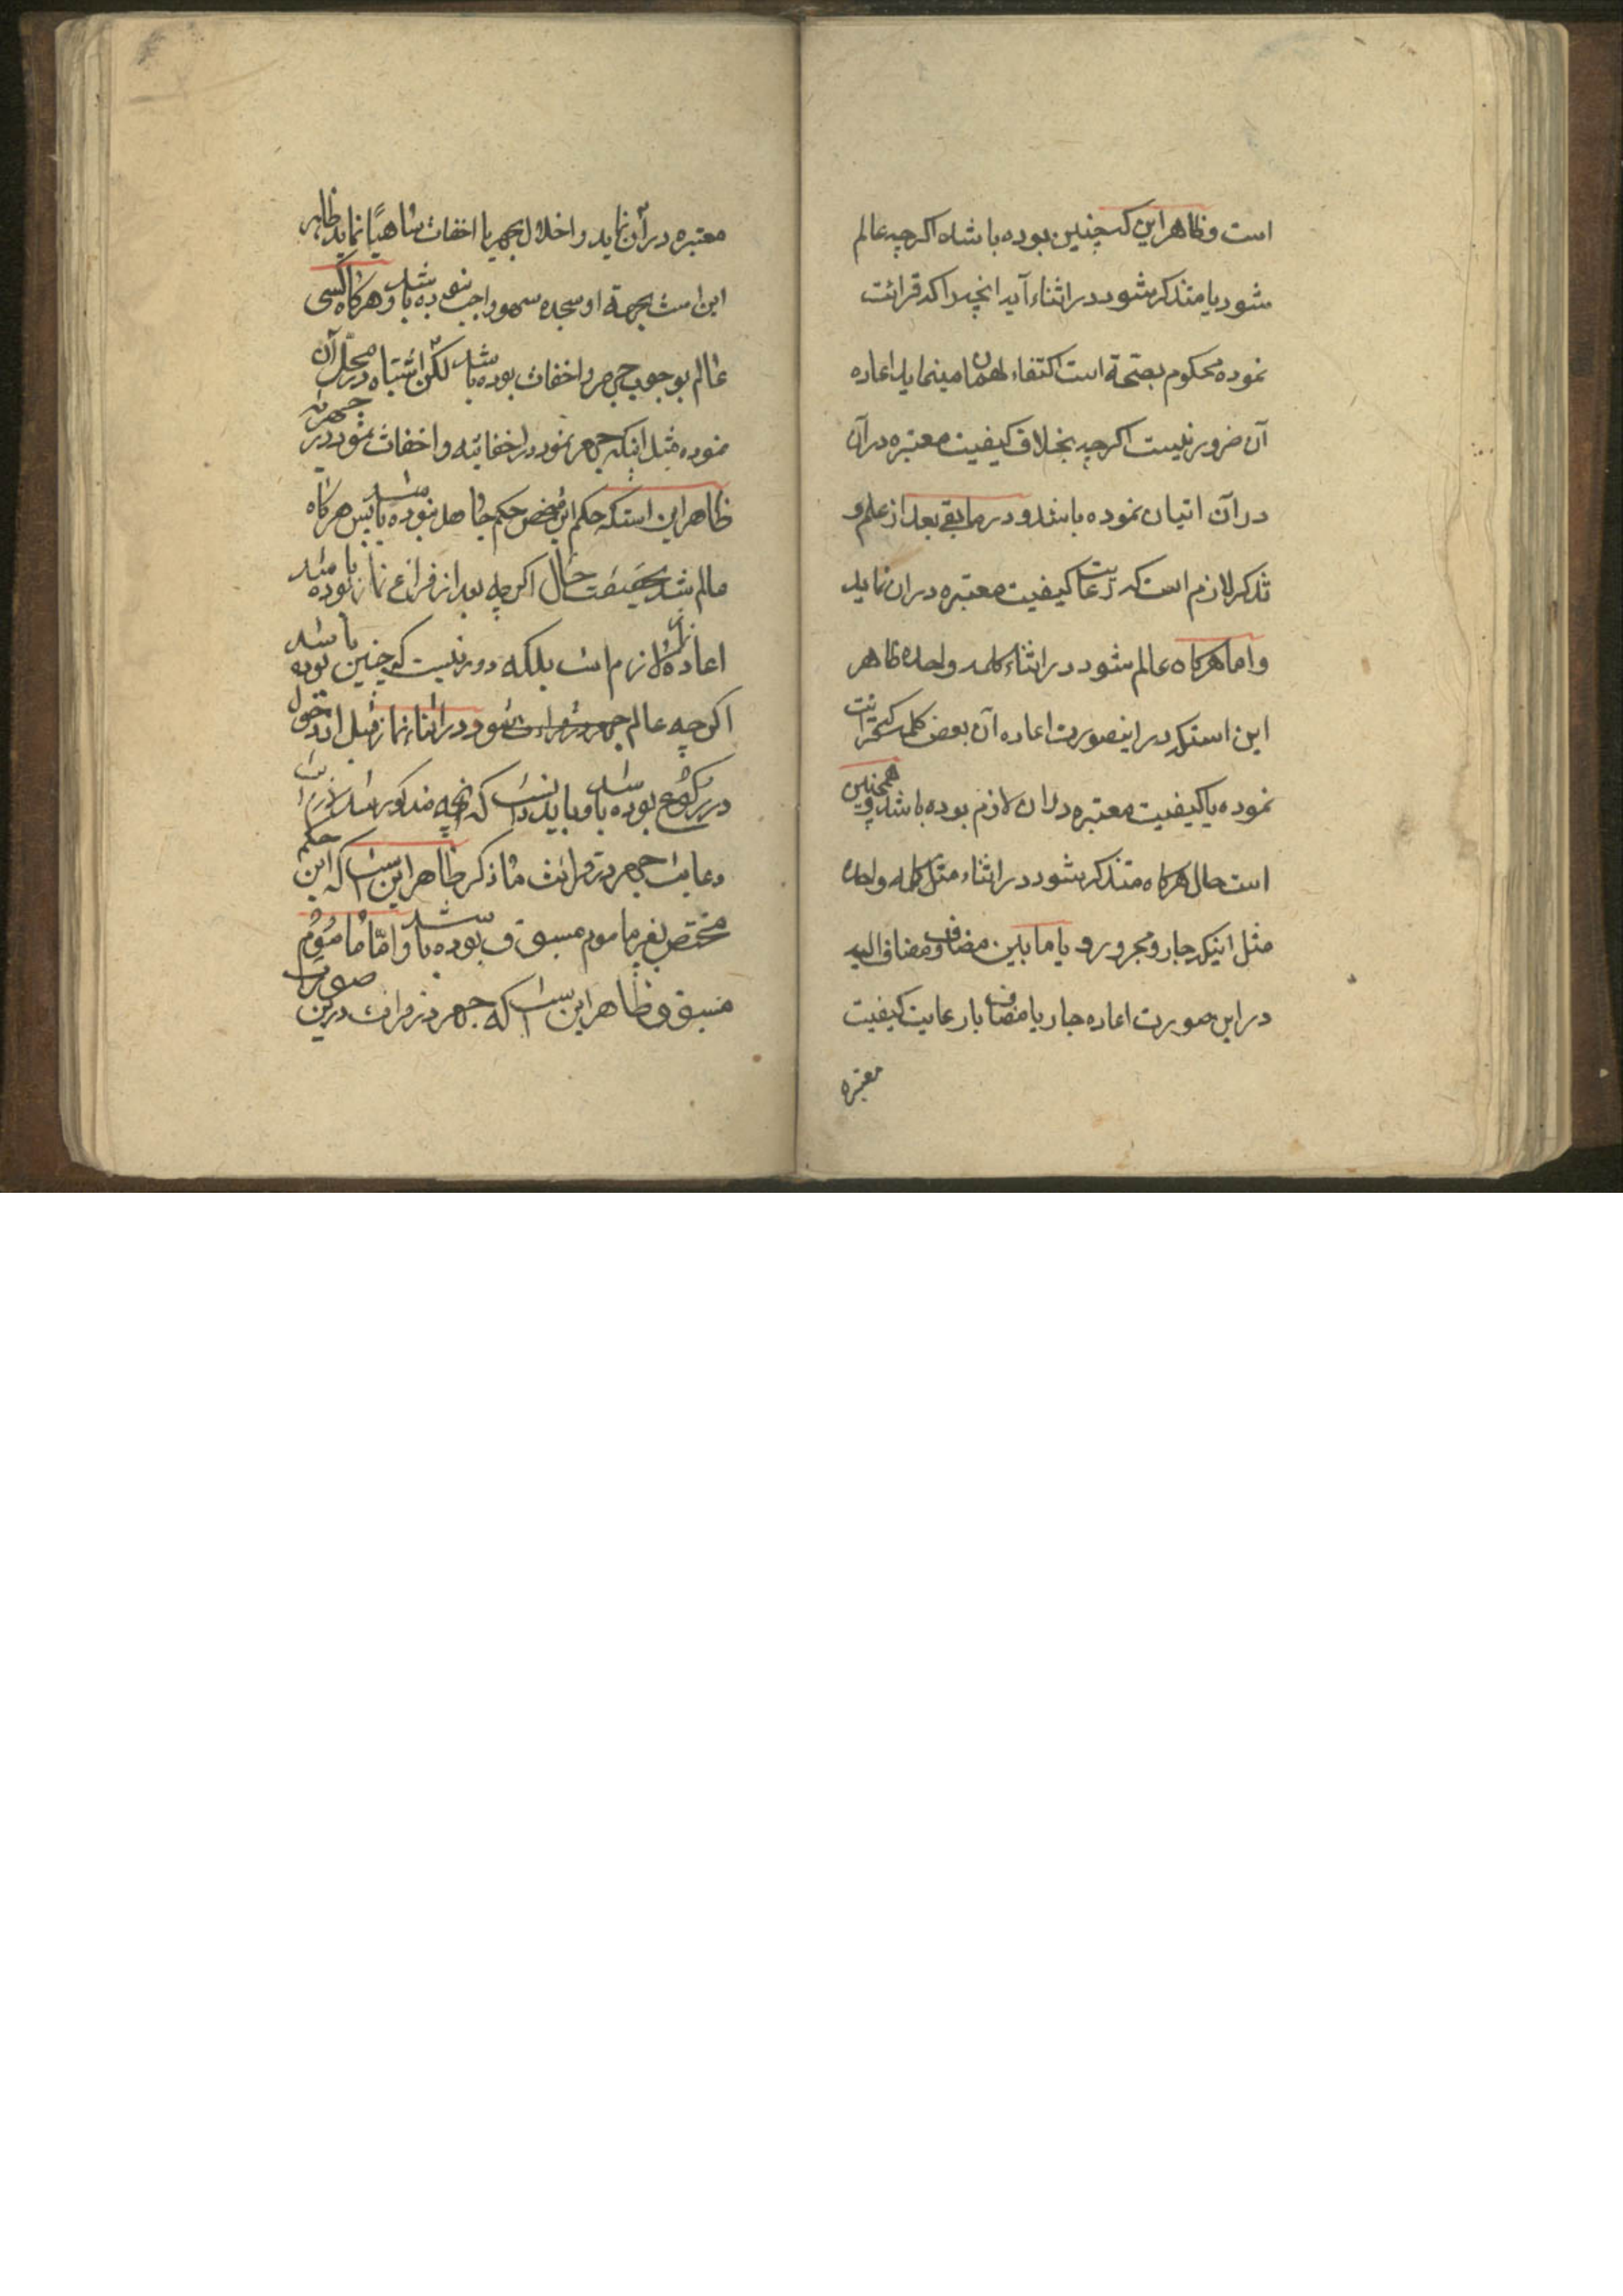 است و ظاهر این که چنین بوده باشد اگرچه عالم
شود یا متذکر شود در اثناء آیه انچه را که قرائت
نموده محکوم بصحة است اکتفاء بهمان مینماید اعاده
آن ضرور نیست اگرچه بخلاف کیفیت معتبره در آن
در آن اتیان نموده باشد و در مابقی بعد از علم و
تذکر لازم است که رعایت کیفیت معتبره در ان نماید
و اما هرگاه عالم شود در اثناء کلمه واحده ظاهر
این استکه در اینصورت اعاده آن بعض کلمه که قرائت
نموده با کیفیت معتبره در ان لازم بوده باشد و همچنین
است حال هرگاه متذکر شود در اثناء مثل کلمه واحده
مثل اینکه جار و مجرور و یا مابین مضاف و مضاف الیه
در این صورت اعاده جار یا مضاف با رعایت کیفیت
معتبره
معتبره در آن نماید و اخلال بجهر یا اخفات ساهیًا نماید ظاهر
این است بجهة او سجده سهو واجب نبوده باشد و هرگاه کسی
عالم بوجوب جهر و اخفات بوده باشد لکن اشتباه در محل آن
نموده مثل اینکه جهر نمود در اخفاتیه و اخفات نمود در جهریه
ظاهر این استکه حکم این شخص حکم جاهل نبوده باشد پس هرگاه
عالم شد بحقیقت حال اگرچه بعد از فراغ نماز بوده باشد
اعاده نماز لازم است بلکه دور نیست که چنین بوده باشد
اگرچه عالم شود در اثناء نماز قبل از دخول
در رکوع بوده باشد و باید دانست که انچه مذکور شد از
رعایت جهر در قرائت ما ذکر ظاهر این است که این حکم
مختص بغیر ماموم مسبوق بوده باشد و امّا ماموم
مسبوق ظاهر این است که جهر در قرائت درین صورت